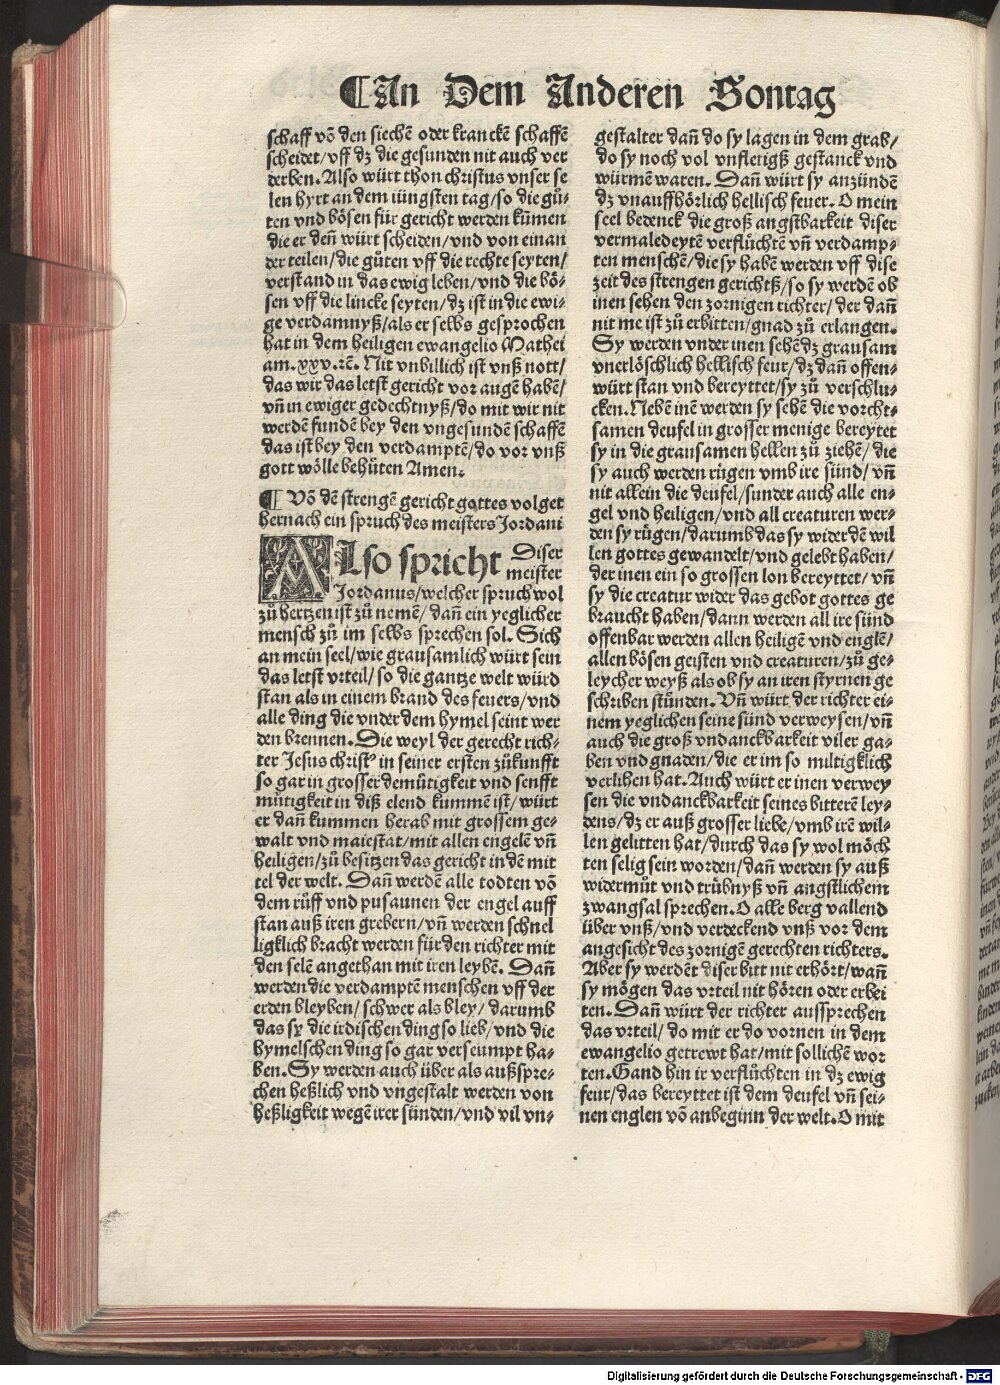 ¶An Dem Anderen Sontag
schaff võ den siechē oder kranckē schaffē
scheidet/vff dz die gesunden nit auch ver
derben. Also würt thon christus vnser se
len hyrt an dem iüngsten tag/so die gů⸗
ten vnd bösen für gericht werden kūmen
die er deñ würt scheiden/vnd von einan
der teilen/die gůten vff die rechte seyten/
verstand in das ewig leben/vnd die bö⸗
sen vff die lincke seyten/dz ist in die ewi⸗
ge verdamnyß/als er selbs gesprochen
hat in dem heiligen ewangelio Mathei
am.xxv.rc̄. Nit vnbillich ist vnß nott/
das wir das letst gericht vor augē habē/
vñ in ewiger gedechtnyß/do mit wir nit
werdē fundē bey den vngesundē schaffē
das ist bey den verdamptē/do vor vnß
gott wölle behüten Amen.
¶ Võ dē strengē gericht gottes volget
hernach ein spruch des meisters Jordani
ALso spricht Diser
meister
Jordanus/welcher spruch wol
zů hertzen ist zů nemē/dañ ein yeglicher
mensch zů im selbs sprechen sol. Sich
an mein seel/wie grausamlich würt sein
das letst vrteil/so die gantze welt würd
stan als in einem brand des feuers/vnd
alle ding die vnder dem hymel seint wer
den brennen. Die weyl der gerecht rich⸗
ter Jesus christꝰ in seiner ersten zůkunfft
so gar in grosser demütigkeit vnd senfft
mütigkeit in diß elend kummē ist/würt
er dañ kummen herab mit grossem ge⸗
walt vnd maiestat/mit allen engelē vñ
heiligen/zů besitzen das gericht in dē mit
tel der welt. Dañ werdē alle todten võ
dem růff vnd pusaunen der engel auff
stan auß iren grebern/vñ werden schnel
ligklich bracht werden für den richter mit
den selē angethan mit iren leybē. Dañ
werden die verdamptē menschen vff der
erden bleyben/schwer als bley/darumb
das sy die irdischen ding so lieb/vnd die
hymelschen ding so gar verseumpt ha⸗
ben. Sy werden auch über als außspre⸗
chen heßlich vnd vngestalt werden von
heßligkeit wegē irer sünden/vnd vil vn⸗
gestalter dañ do sy lagen in dem grab/
do sy noch vol vnfletigß gestanck vnd
würmē waren. Dañ würt sy anzündē
dz vnauffhörlich hellisch feuer. O mein
seel bedenck die groß angstbarkeit diser
vermaledeytē verflůchtē vñ verdamp⸗
ten menschē/die sy habē werden vff dise
zeit des strengen gerichtß/so sy werdē ob
inen sehen den zornigen richter/der dañ
nit me ist zů erbitten/gnad zů erlangen.
Sy werden vnder inen sehē dz grausam
vnerlöschlich hellisch feur/dz dañ offen⸗
würt stan vnd bereyttet/sy zů verschlu⸗
cken. Nebē inē werden sy sehē die vorcht⸗
samen deufel in grosser menige bereytet
sy in die grausamen hellen zů ziehē/die
sy auch werden rügen vmb ire sünd/vñ
nit allein die deufel/sunder auch alle en⸗
gel vnd heiligen/vnd all creaturen wer⸗
den sy rügen/darumb das sy wider dē wil
len gottes gewandelt/vnd gelebt haben/
der inen ein so grossen lon bereyttet/vñ
sy die creatur wider das gebot gottes ge
braucht haben/dann werden all ire sünd
offenbar werden allen heiligē vnd englē/
allen bösen geisten vnd creaturen/zů ge⸗
leycher weyß als ob sy an iren styrnen ge
schriben stünden. Vñ würt der richter ei⸗
nem yeglichen seine sünd verweysen/vñ
auch die groß vndanckbarkeit viler ga⸗
ben vnd gnaden/die er im so miltigklich
verlihen hat. Auch würt er inen verwey
sen die vndanckbarkeit seines bitterē ley⸗
dens/dz er auß grosser liebe/vmb irē wil⸗
len gelitten hat/durch das sy wol möch
ten selig sein worden/dañ werden sy auß
widermůt vnd trübnyß vñ angstlichem
zwangsal sprechen. O alle berg vallend
über vnß/vnd verdeckend vnß vor dem
angesicht des zornigē gerechten richters.
Aber sy werdēt diser bitt nit erhört/wañ
sy mögen das vrteil nit hören oder erbei
ten. Dañ würt der richter aussprechen
das vrteil/do mit er do vornen in dem
ewangelio getrewt hat/mit sollichē wor
ten. Gand hin ir verflůchten in dz ewig
feur/das bereyttet ist dem deufel vñ sei⸗
nen englen võ anbeginn der welt. O mit
Digitalisierung gefördert durch die Deutsche Forschungsgemeinschaft - DFG